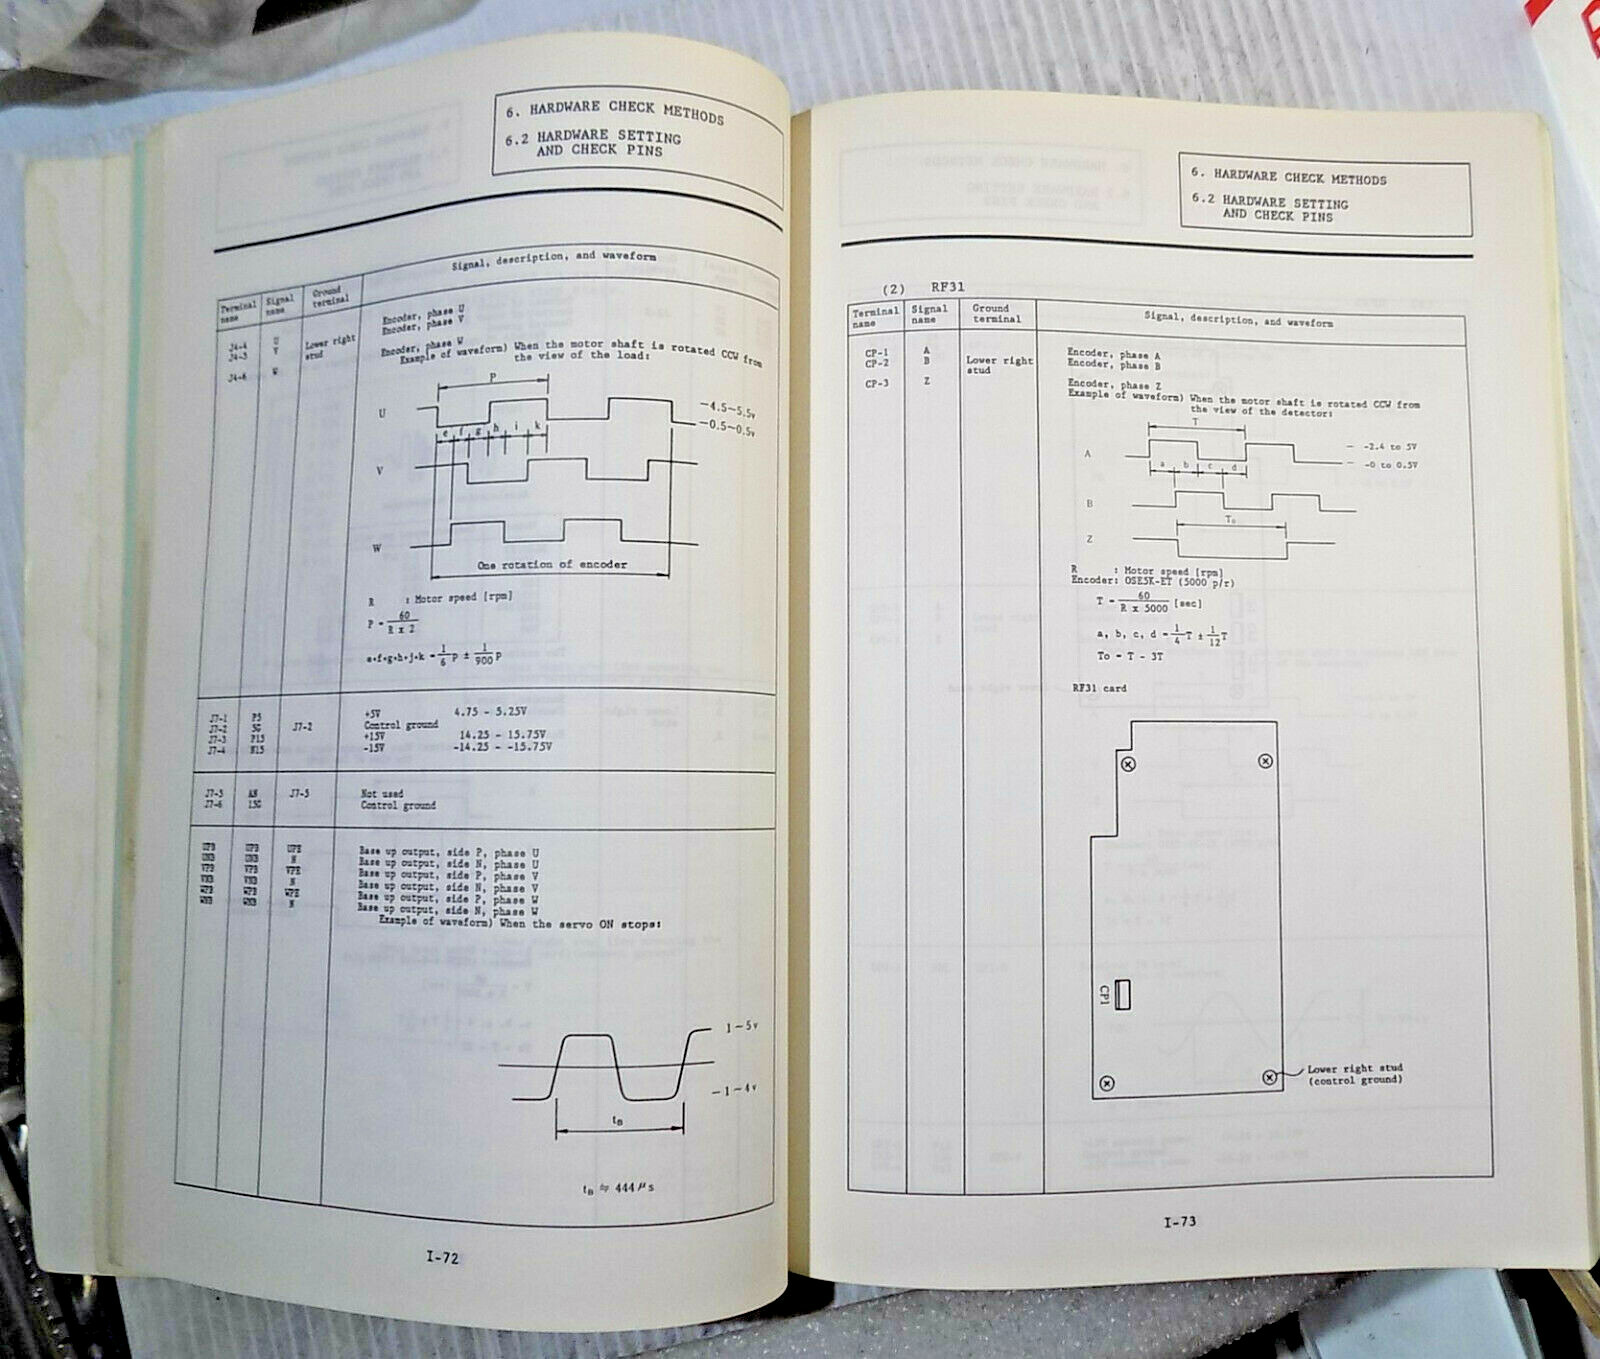 6. HARDWARE CHECK METHODS
6.2 HARDWARE SETTING
AND CHECK PINS
Terminal name
Signal name
Ground terminal
Signal, description, and waveform
J4-4 U Lower right stud Encoder, phase U
V Encoder, phase V
J4-6 W Encoder, phase W
Example of waveform) When the motor shaft is rotated CCW from
the view of the load:
P
U
—4.5~5.5v
—0.5~0.5v
e f g h i k
V
W
One rotation of encoder
R : Motor speed [rpm]
P = 60 / R x 2
e·f·g·h·j·k = 1/6 P ± 1/900 P
J7-1 P5 +5V 4.75 - 5.25V
J7-2 5G J7-2 Control ground
J7-3 P15 +15V 14.25 - 15.75V
J7-4 N15 -15V -14.25 - -15.75V
J7-5 J7-5 Not used
J7-6 15G Control ground
UPB UPB UPE Base up output, side P, phase U
UNB UNB N Base up output, side N, phase U
VPB VPB VPE Base up output, side P, phase V
VNB VNB N Base up output, side N, phase V
WPB WPB WPE Base up output, side P, phase W
WNB WNB N Base up output, side N, phase W
Example of waveform) When the servo ON stops:
1~5v
—1~4v
tB
tB ≒ 444μs
I-72
6. HARDWARE CHECK METHODS
6.2 HARDWARE SETTING
AND CHECK PINS
(2) RF31
Terminal name
Signal name
Ground terminal
Signal, description, and waveform
CP-1 A Encoder, phase A
CP-2 B Lower right stud Encoder, phase B
CP-3 Z Encoder, phase Z
Example of waveform) When the motor shaft is rotated CCW from
the view of the detector:
T
A
— -2.4 to 5V
— -0 to 0.5V
a b c d
B
To
Z
R : Motor speed [rpm]
Encoder: OSE5K-ET (5000 p/r)
T = 60 / R x 5000 [sec]
a, b, c, d = 1/4 T ± 1/12 T
To = T - 3T
RF31 card
CP1
Lower right stud
(control ground)
I-73